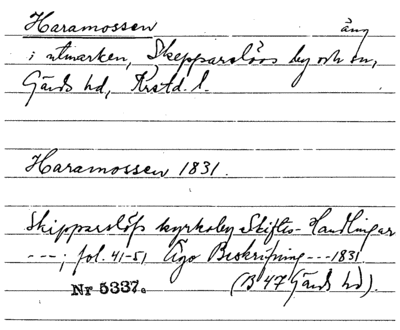 Haramossen äng
i utmarken, Skepparslövs by och sn,
Gärds hd, Krstd. l.
Haramossen 1831.
Skipparslöfs kyrkoby Skiftes-Handlingar
---; fol. 41-51 Ägo Beskrifning --- 1831.
Nr 5337. (B 47 Gärds hd).